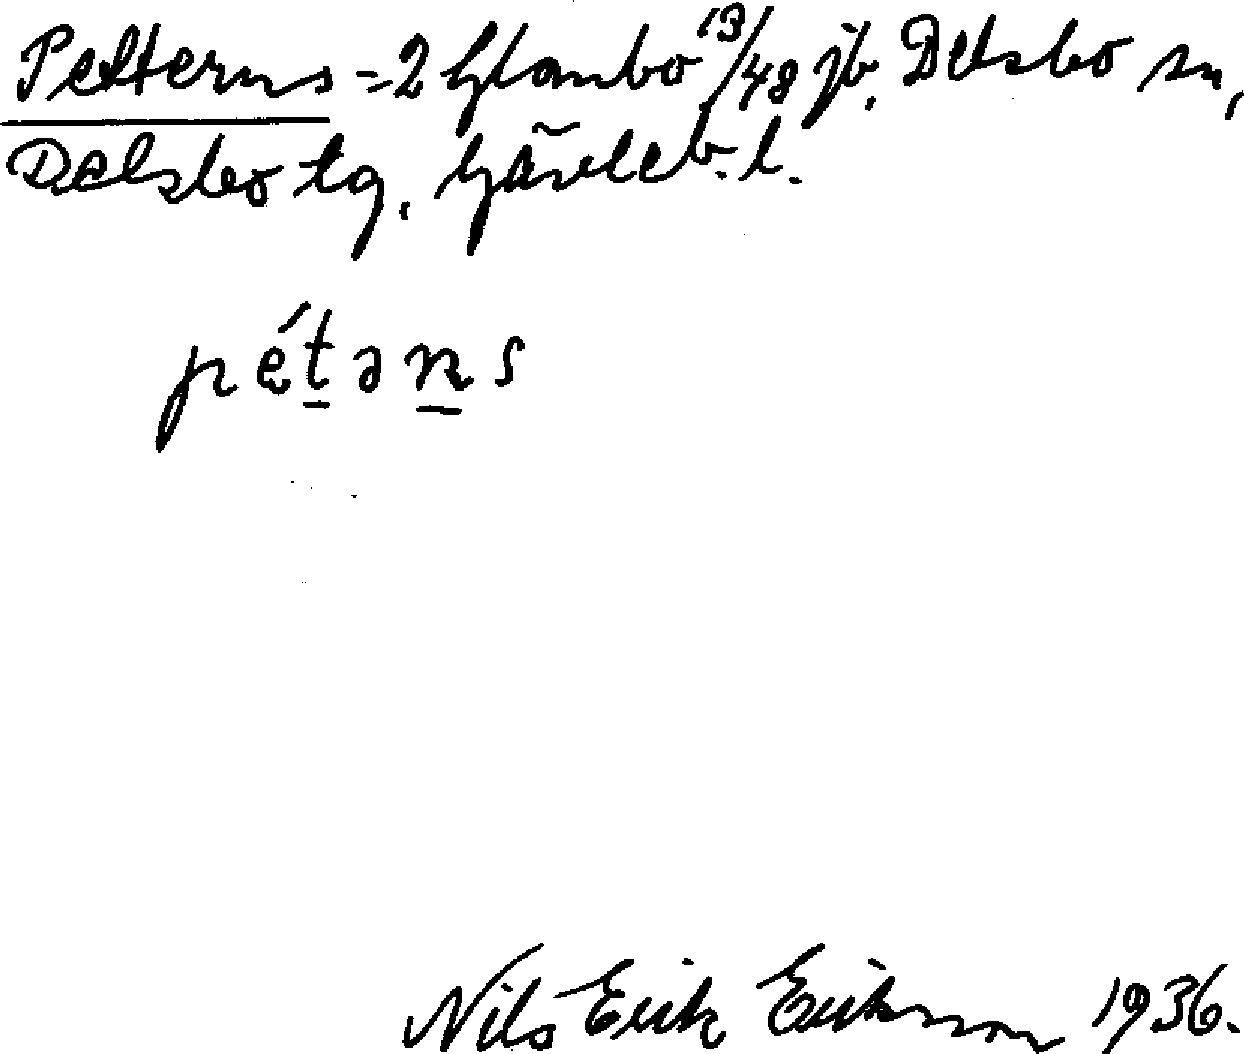 Petterns = 2 Glombo 13/48 jb. Delsbo sn,
Delsbo tg. Gävleb. l.
pétəns
Nils Erik Erikson 1936.